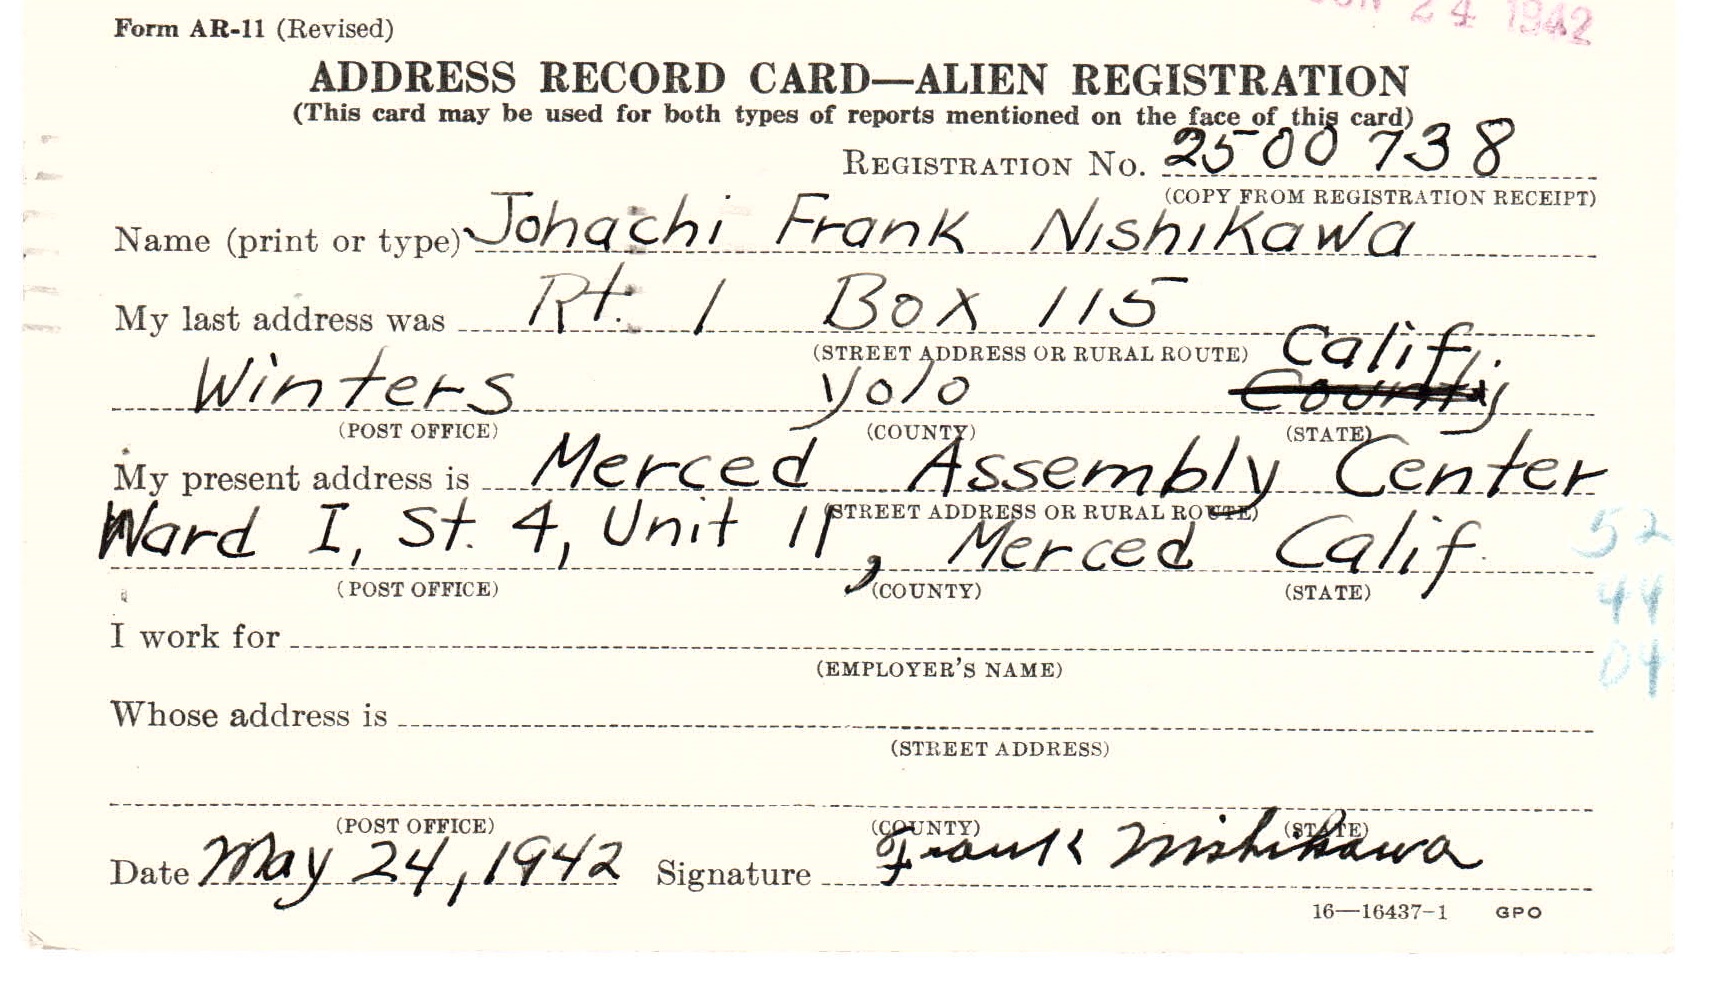 24 1942
Form AR-11 (Revised)
ADDRESS RECORD CARD—ALIEN REGISTRATION
(This card may be used for both types of reports mentioned on the face of this card)
REGISTRATION No. 2500738
(COPY FROM REGISTRATION RECEIPT)
Name (print or type) Johachi Frank Nishikawa
My last address was Rt. 1 Box 115
(STREET ADDRESS OR RURAL ROUTE) Calif.
Winters Yolo County
(POST OFFICE) (COUNTY) (STATE)
My present address is Merced Assembly Center
(STREET ADDRESS OR RURAL ROUTE)
Ward I, St. 4, Unit 11, Merced Calif.
52
(POST OFFICE) (COUNTY) (STATE)
44
I work for
04
(EMPLOYER'S NAME)
Whose address is
(STREET ADDRESS)
(POST OFFICE) (COUNTY) (STATE)
Date May 24, 1942 Signature Frank Nishikawa
16—16437-1 GPO